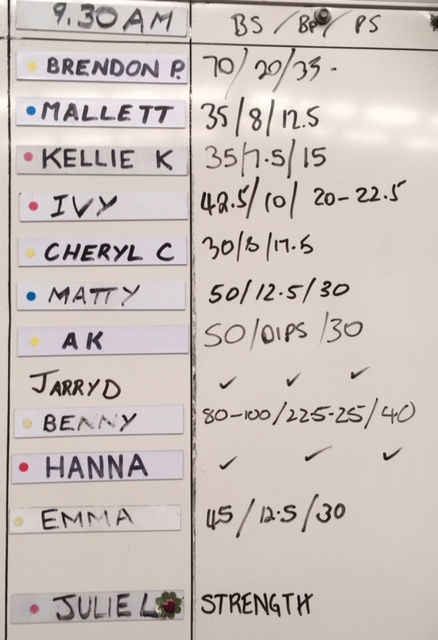 9.30 AM BS / BP / PS
BRENDON P. 70/20/35-
MALLETT 35/8/12.5
KELLIE K 35/7.5/15
IVY 42.5/10/ 20-22.5
CHERYL C 30/8/17.5
MATTY 50/12.5/30
AK 50/DIPS/30
JARRYD ✓ ✓ ✓
BENNY 80-100/22.5-25/40
HANNA ✓ ✓ ✓
EMMA 45/12.5/30
JULIE L STRENGTH